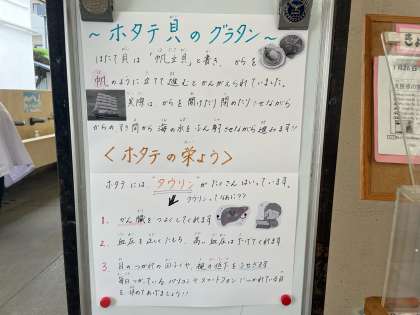 ～ホタテ貝のグラタン～
ほたて貝は「帆立貝」と書き、からを
帆のように立てて進むとかんがえられていました。
実際は、からを開けたり閉めたりさせながら
からのすき間から海の水をふん射させながら進みます!!
＜ホタテの栄よう＞
ホタテには、“タウリン”がたくさんはいっています。
タウリンってなあに??
1. かん臓をつよくしてくれます
2. 血圧を正しくたもち、高い血圧は下げてくれます
3. 目のつかれの回ふくや、視力の低下をふせぎます
毎日つかっているパソコンやスマートフォンにつかれている目
を休めてあげましょう!!